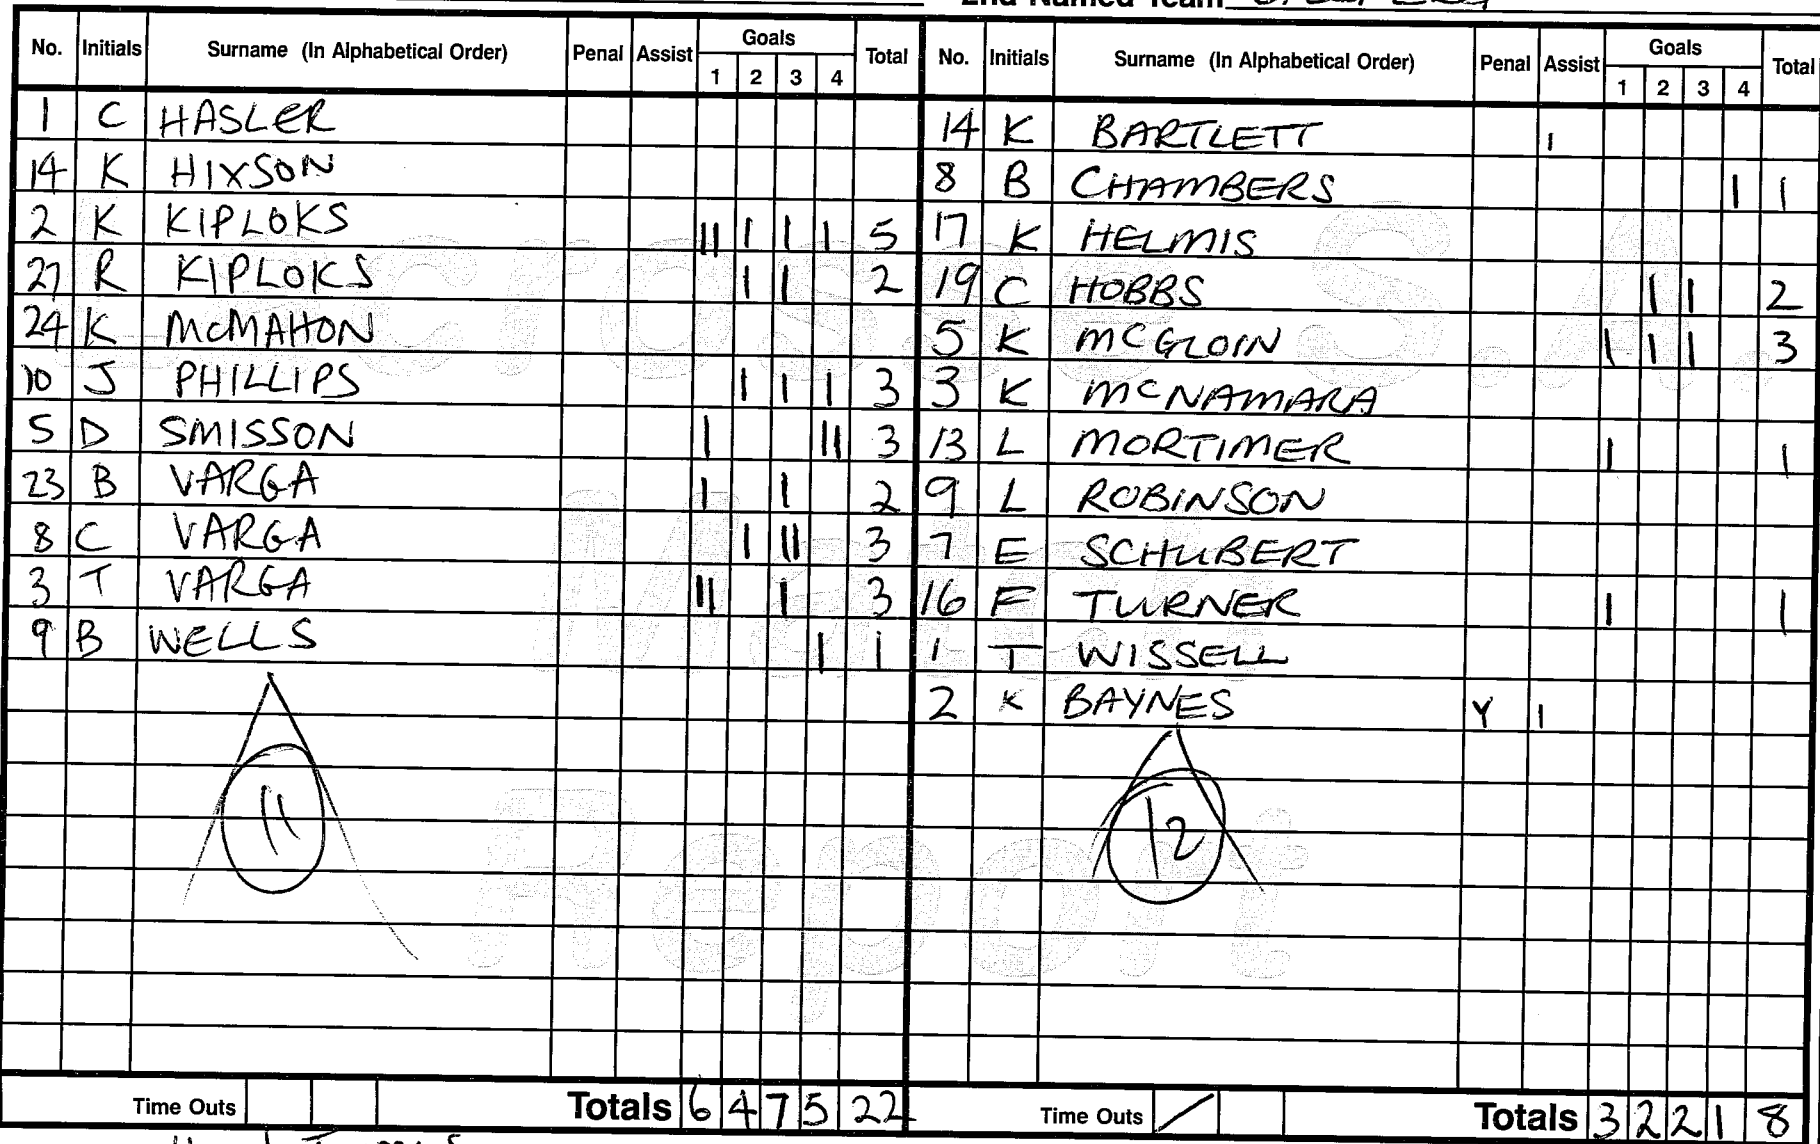 2nd Named Team
No. Initials Surname (In Alphabetical Order) Penal Assist Goals 1 2 3 4 Total
1 C HASLER
14 K HIXSON
2 K KIPLOKS || | | | 5
27 R KIPLOKS | | 2
24 K McMAHON
10 J PHILLIPS | | | 3
5 D SMISSON | || 3
23 B VARGA | | 2
8 C VARGA | || 3
3 T VARGA || | 3
9 B WELLS | 1
11
Time Outs Totals 6 4 7 5 22
No. Initials Surname (In Alphabetical Order) Penal Assist Goals 1 2 3 4 Total
14 K BARTLETT 1
8 B CHAMBERS | 1
17 K HELMIS
19 C HOBBS | | 2
5 K McGLOIN | | | 3
3 K McNAMARA
13 L MORTIMER | 1
9 L ROBINSON
7 E SCHUBERT
16 F TURNER | 1
1 T WISSELL
2 K BAYNES Y 1
12
Time Outs / Totals 3 2 2 1 8